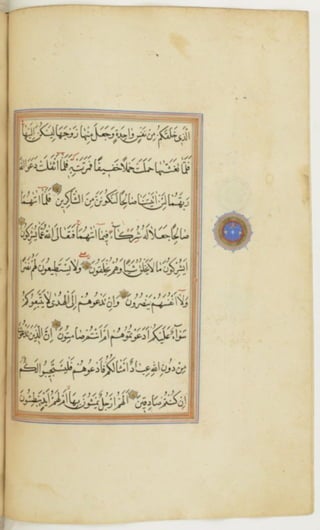 الَّذِي خَلَقَكُمْ مِنْ نَفْسٍ وَاحِدَةٍ وَجَعَلَ مِنْهَا زَوْجَهَا لِيَسْكُنَ إِلَيْهَا
فَلَمَّا تَغَشّٰيهَا حَمَلَتْ حَمْلًا خَفِيفًا فَمَرَّتْ بِهِ فَلَمَّا أَثْقَلَتْ دَعَوَا اللهَ
رَبَّهُمَا لَئِنْ اٰتَيْتَنَا صَالِحًا لَنَكُونَنَّ مِنَ الشَّاكِرِينَ فَلَمَّا اٰتٰيهُمَا
صَالِحًا جَعَلَا لَهُ شُرَكَاءَ فِيمَا اٰتٰيهُمَا فَتَعَالَى اللهُ عَمَّا يُشْرِكُونَ
أَيُشْرِكُونَ مَا لَا يَخْلُقُ شَيْئًا وَهُمْ يُخْلَقُونَ وَلَا يَسْتَطِيعُونَ لَهُمْ نَصْرًا
وَلَا أَنْفُسَهُمْ يَنْصُرُونَ وَإِنْ تَدْعُوهُمْ إِلَى الْهُدٰى لَا يَتَّبِعُوكُمْ
سَوَاءٌ عَلَيْكُمْ أَدَعَوْتُمُوهُمْ أَمْ أَنْتُمْ صَامِتُونَ إِنَّ الَّذِينَ تَدْعُونَ
مِنْ دُونِ اللهِ عِبَادٌ أَمْثَالُكُمْ فَادْعُوهُمْ فَلْيَسْتَجِيبُوا لَكُمْ
إِنْ كُنْتُمْ صَادِقِينَ أَلَهُمْ أَرْجُلٌ يَمْشُونَ بِهَا أَمْ لَهُمْ أَيْدٍ يَبْطِشُونَ